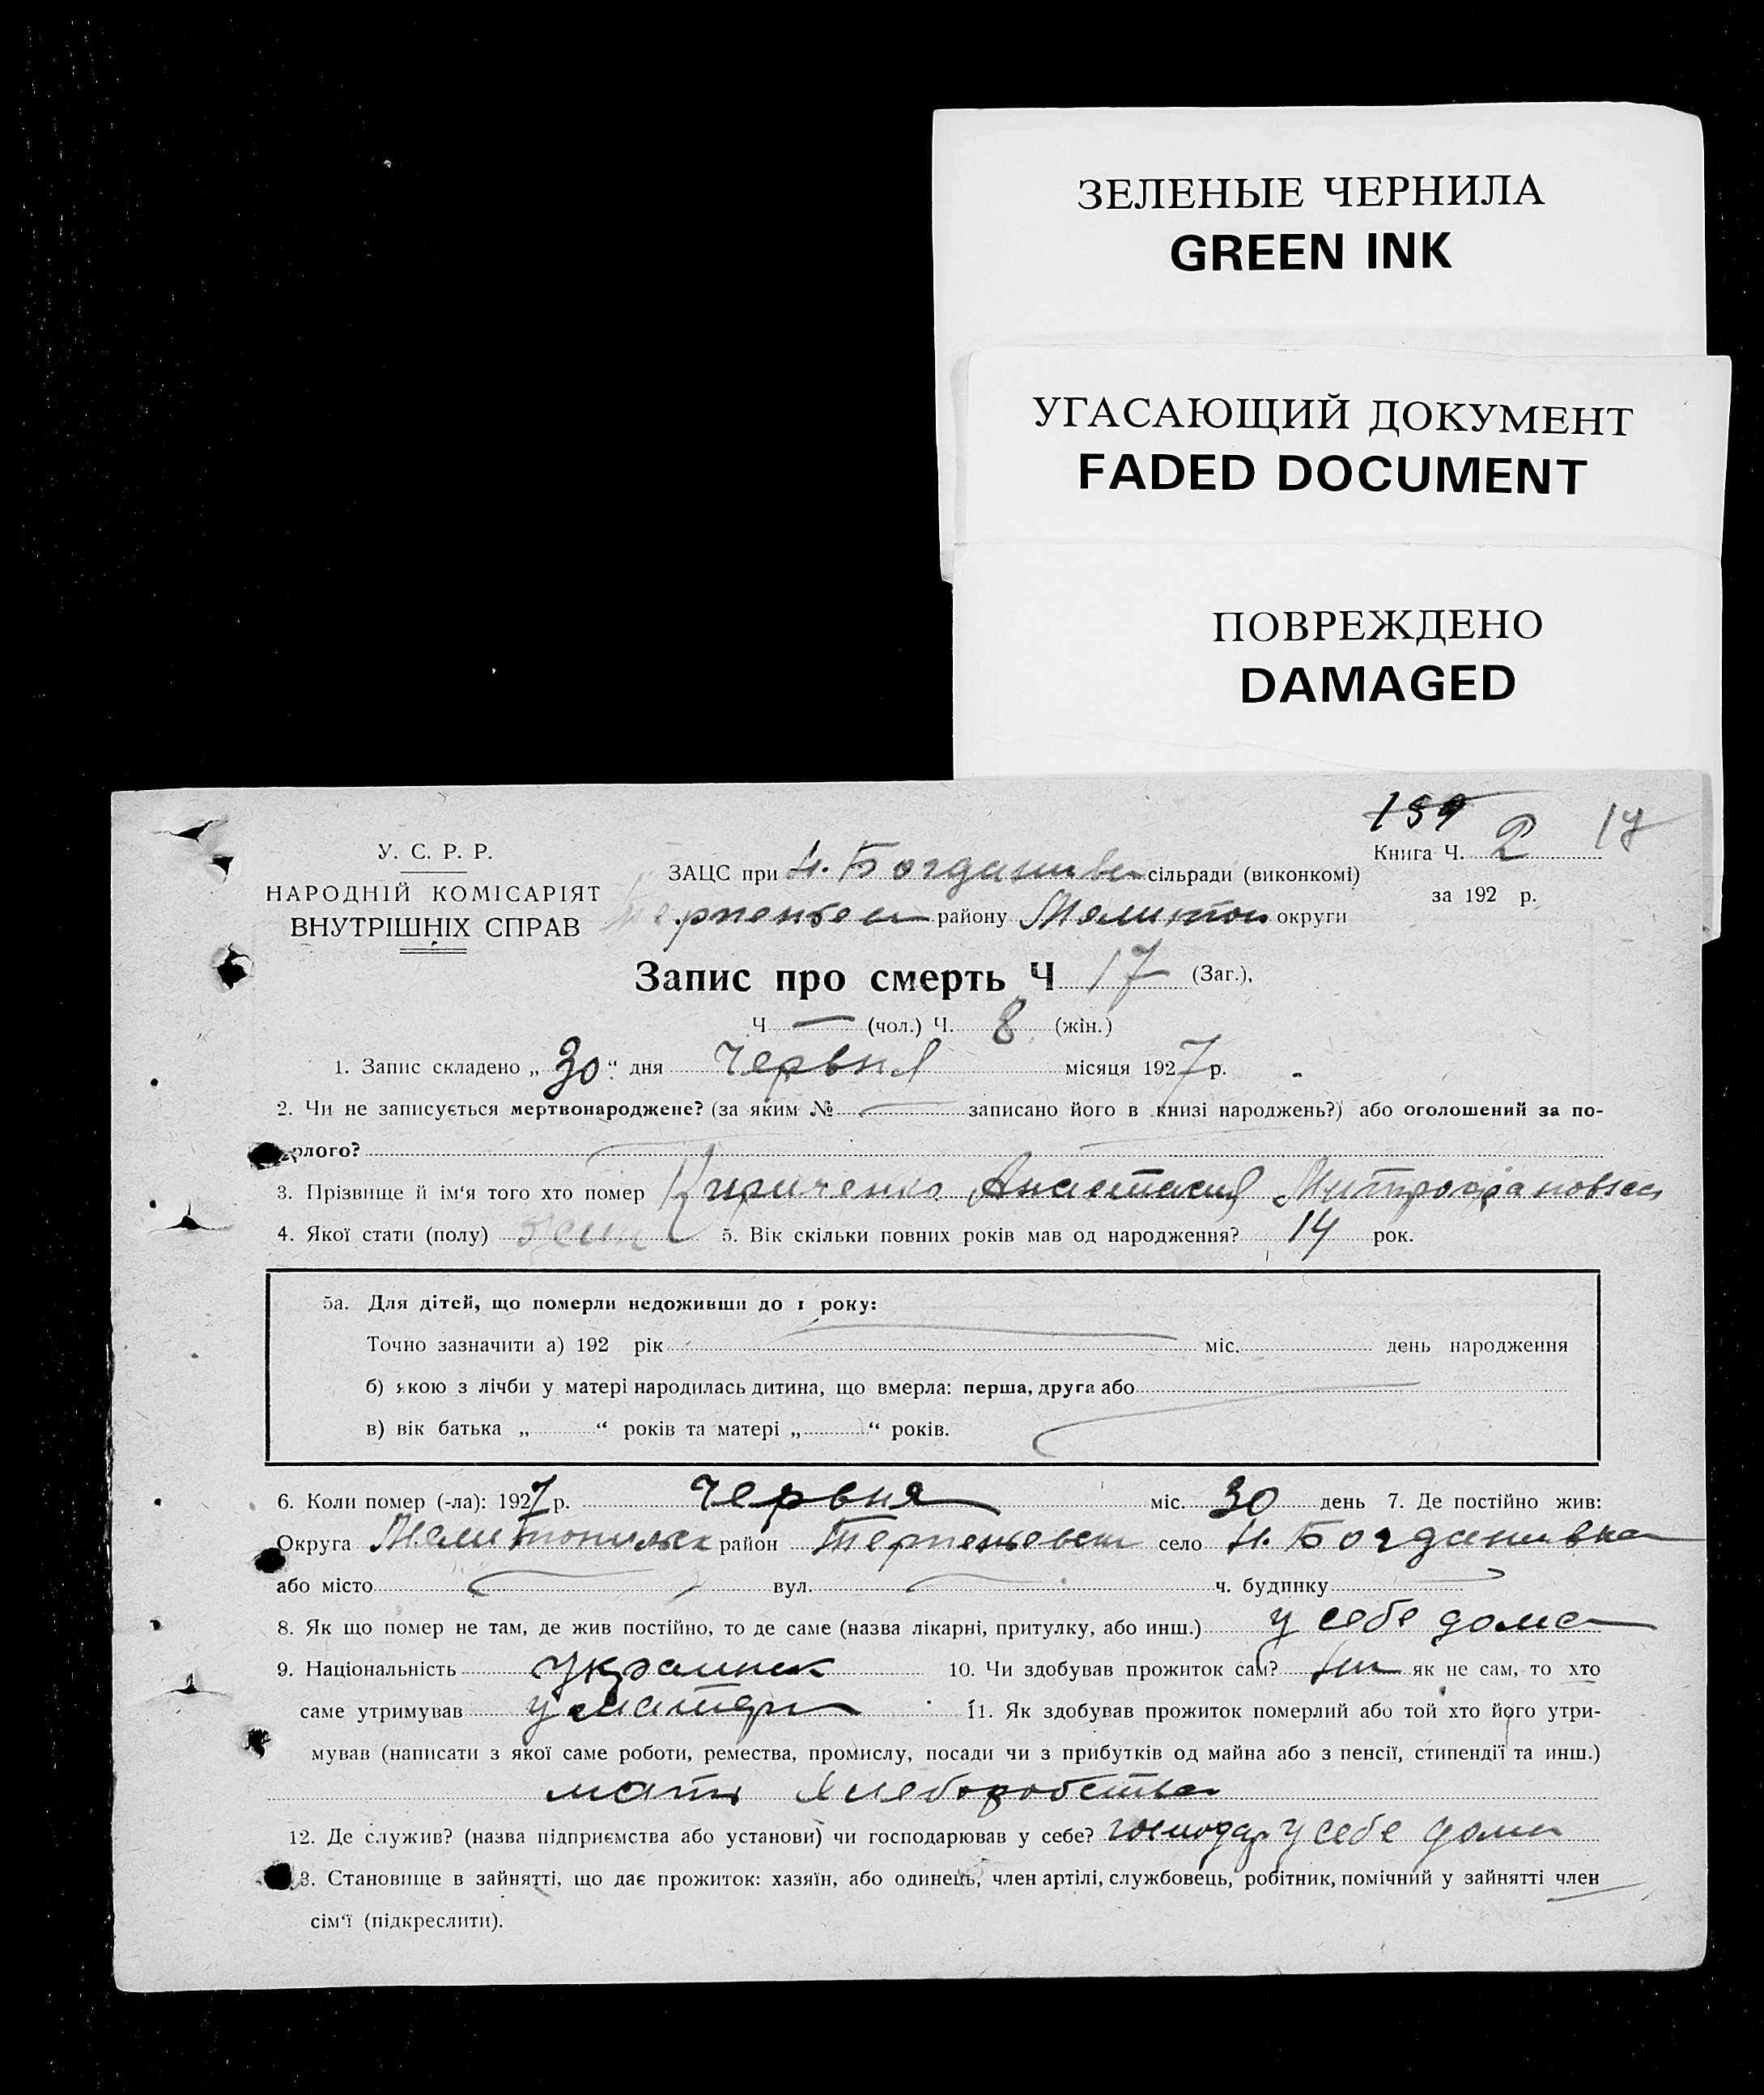 ЗЕЛЕНЫЕ ЧЕРНИЛА
GREEN INK
УГАСАЮЩИЙ ДОКУМЕНТ
FADED DOCUMENT
ПОВРЕЖДЕНО
DAMAGED
159
17
У. С. Р. Р.
НАРОДНІЙ КОМІСАРІЯТ
ВНУТРІШНІХ СПРАВ
Книга Ч. 2
за 192 р.
ЗАЦС при Н. Богданивки сільради (виконкомі)
району Мелитоп округи
Запис про смерть Ч 17 (Заг.),
Ч — (чол.) Ч. 8 (жін.)
1. Запис складено „ 30 “ дня червня місяця 1927 р.
2. Чи не записується мертвонароджене? (за яким № — записано його в книзі народжень?) або оголошений за по-
рлого?
3. Прізвище й ім‘я того хто помер Кириченко Анастасия Митрофановна
4. Якої стати (полу) 5. Вік скільки повних років мав од народження? 14 рок.
5а. Для дітей, що померли недоживши до 1 року:
Точно зазначити а) 192 рік міс. день народження
б) якою з лічби у матері народилась дитина, що вмерла: перша, друга або
в) вік батька „ “ років та матері „ “ років.
6. Коли помер (-ла): 1927 р. червня міс. 30 день 7. Де постійно жив:
Округа Мелитопильск район Терпеньевски село Н. Богданивка
або місто вул. ч. будинку
8. Як що помер не там, де жив постійно, то де саме (назва лікарні, притулку, або инш.) у себе дома
9. Національність украинск 10. Чи здобував прожиток сам? ни як не сам, то хто
саме утримував у матери 11. Як здобував прожиток померлий або той хто його утри-
мував (написати з якої саме роботи, ремества, промислу, посади чи з прибутків од майна або з пенсії, стипендії та инш.)
мать хлеборобства
12. Де служив? (назва підприємства або установи) чи господарював у себе? господар у себе дома
3. Становище в зайнятті, що дає прожиток: хазяїн, або одинець, член артілі, службовець, робітник, помічний у зайнятті член
сім‘ї (підкреслити).